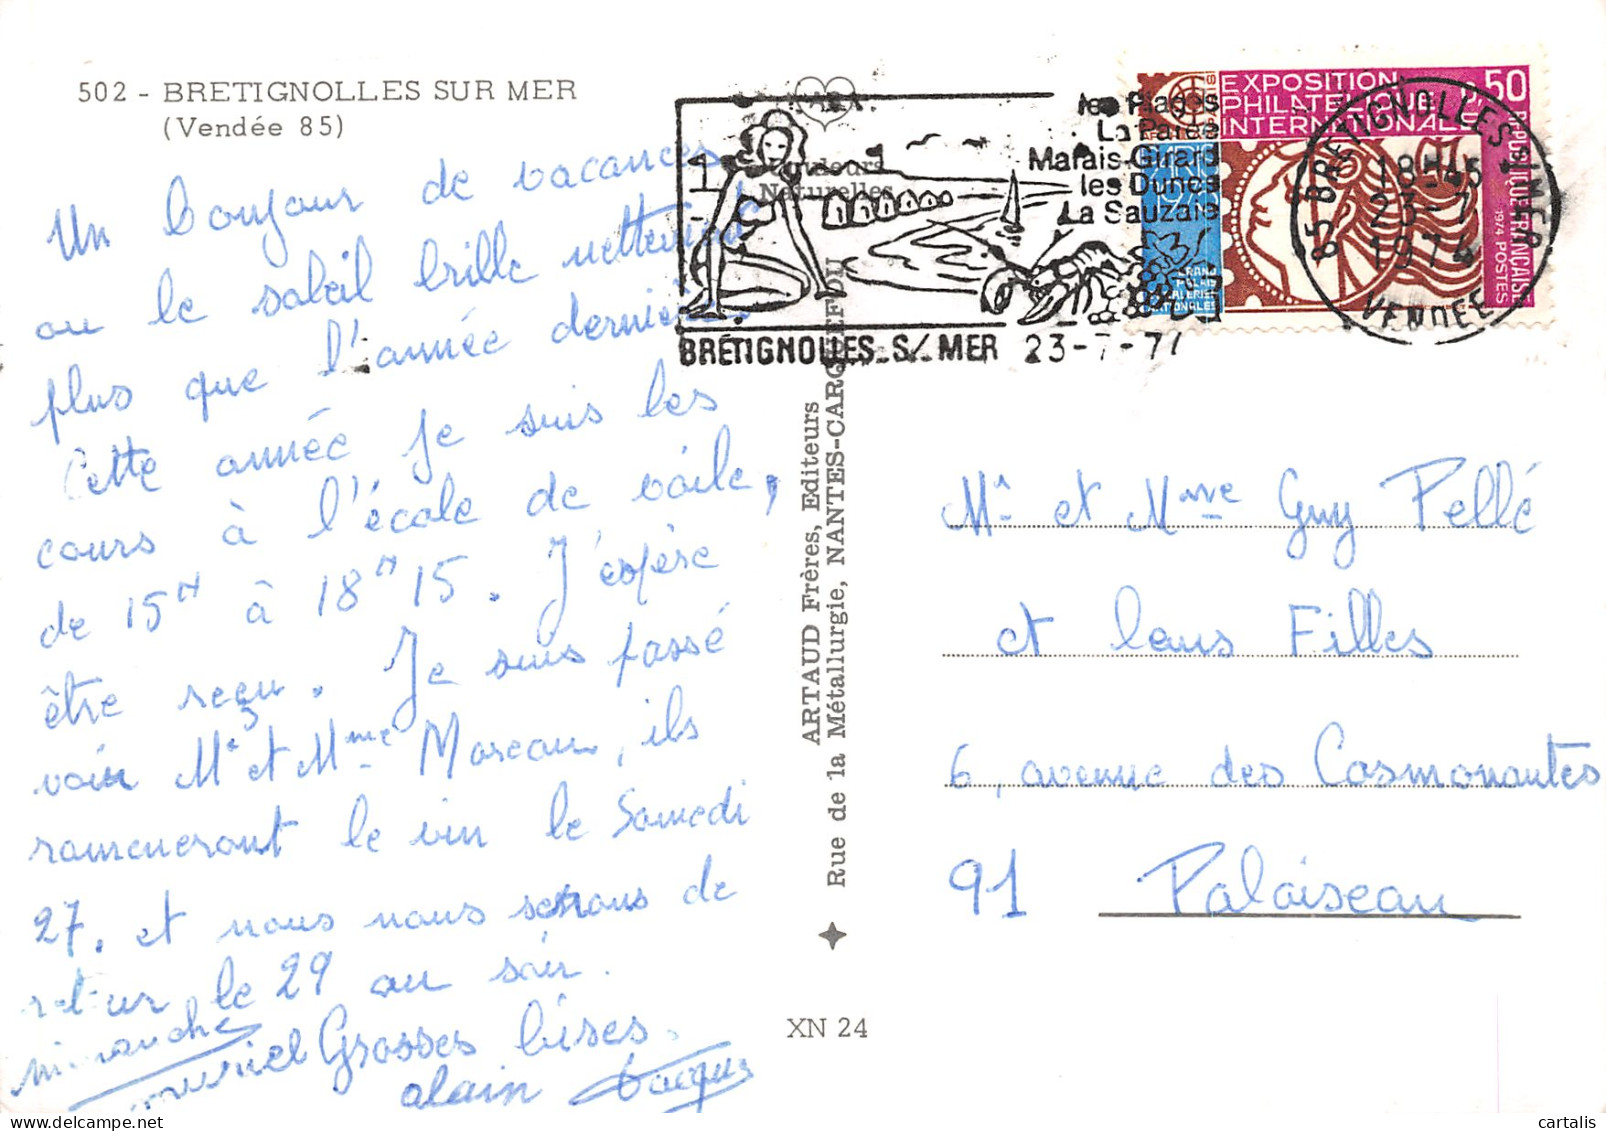 502 - BRETIGNOLLES SUR MER
(Vendée 85)
Un bonjour de vacances
ou le soleil brille nettement
plus que l'année dernière.
Cette année je suis les
cours à l'école de voile,
de 15H à 18H15. J'espère
être reçu. Je suis passé
voir Mr et Mme Moreau, ils
rameneront le vin le Samedi
27, et nous nous serons de
retour le 29 au soir.
Grosses bises.
muriel
alain Jacques
Couleurs
Naturelles
ARTAUD Frères, Editeurs
Rue de la Métallurgie, NANTES-CARQUEFOU
XN 24
les Plages
La Parée
Marais-Girard
les Dunes
La Sauzaie
BRÉTIGNOLLES-S/-MER 23-7-7
EXPOSITION
PHILATELIQUE
INTERNATIONALE
0,50
REPUBLIQUE FRANÇAISE
1974 POSTES
GRAND
PALAIS
GALERIES
NATIONALES
85 BRETIGNOLLES S MER
18H45
23-7
1974
VENDÉE
Mr et Mme Guy Pellé
et leurs Filles
6, avenue des Cosmonautes
91 Palaiseau
cartalis